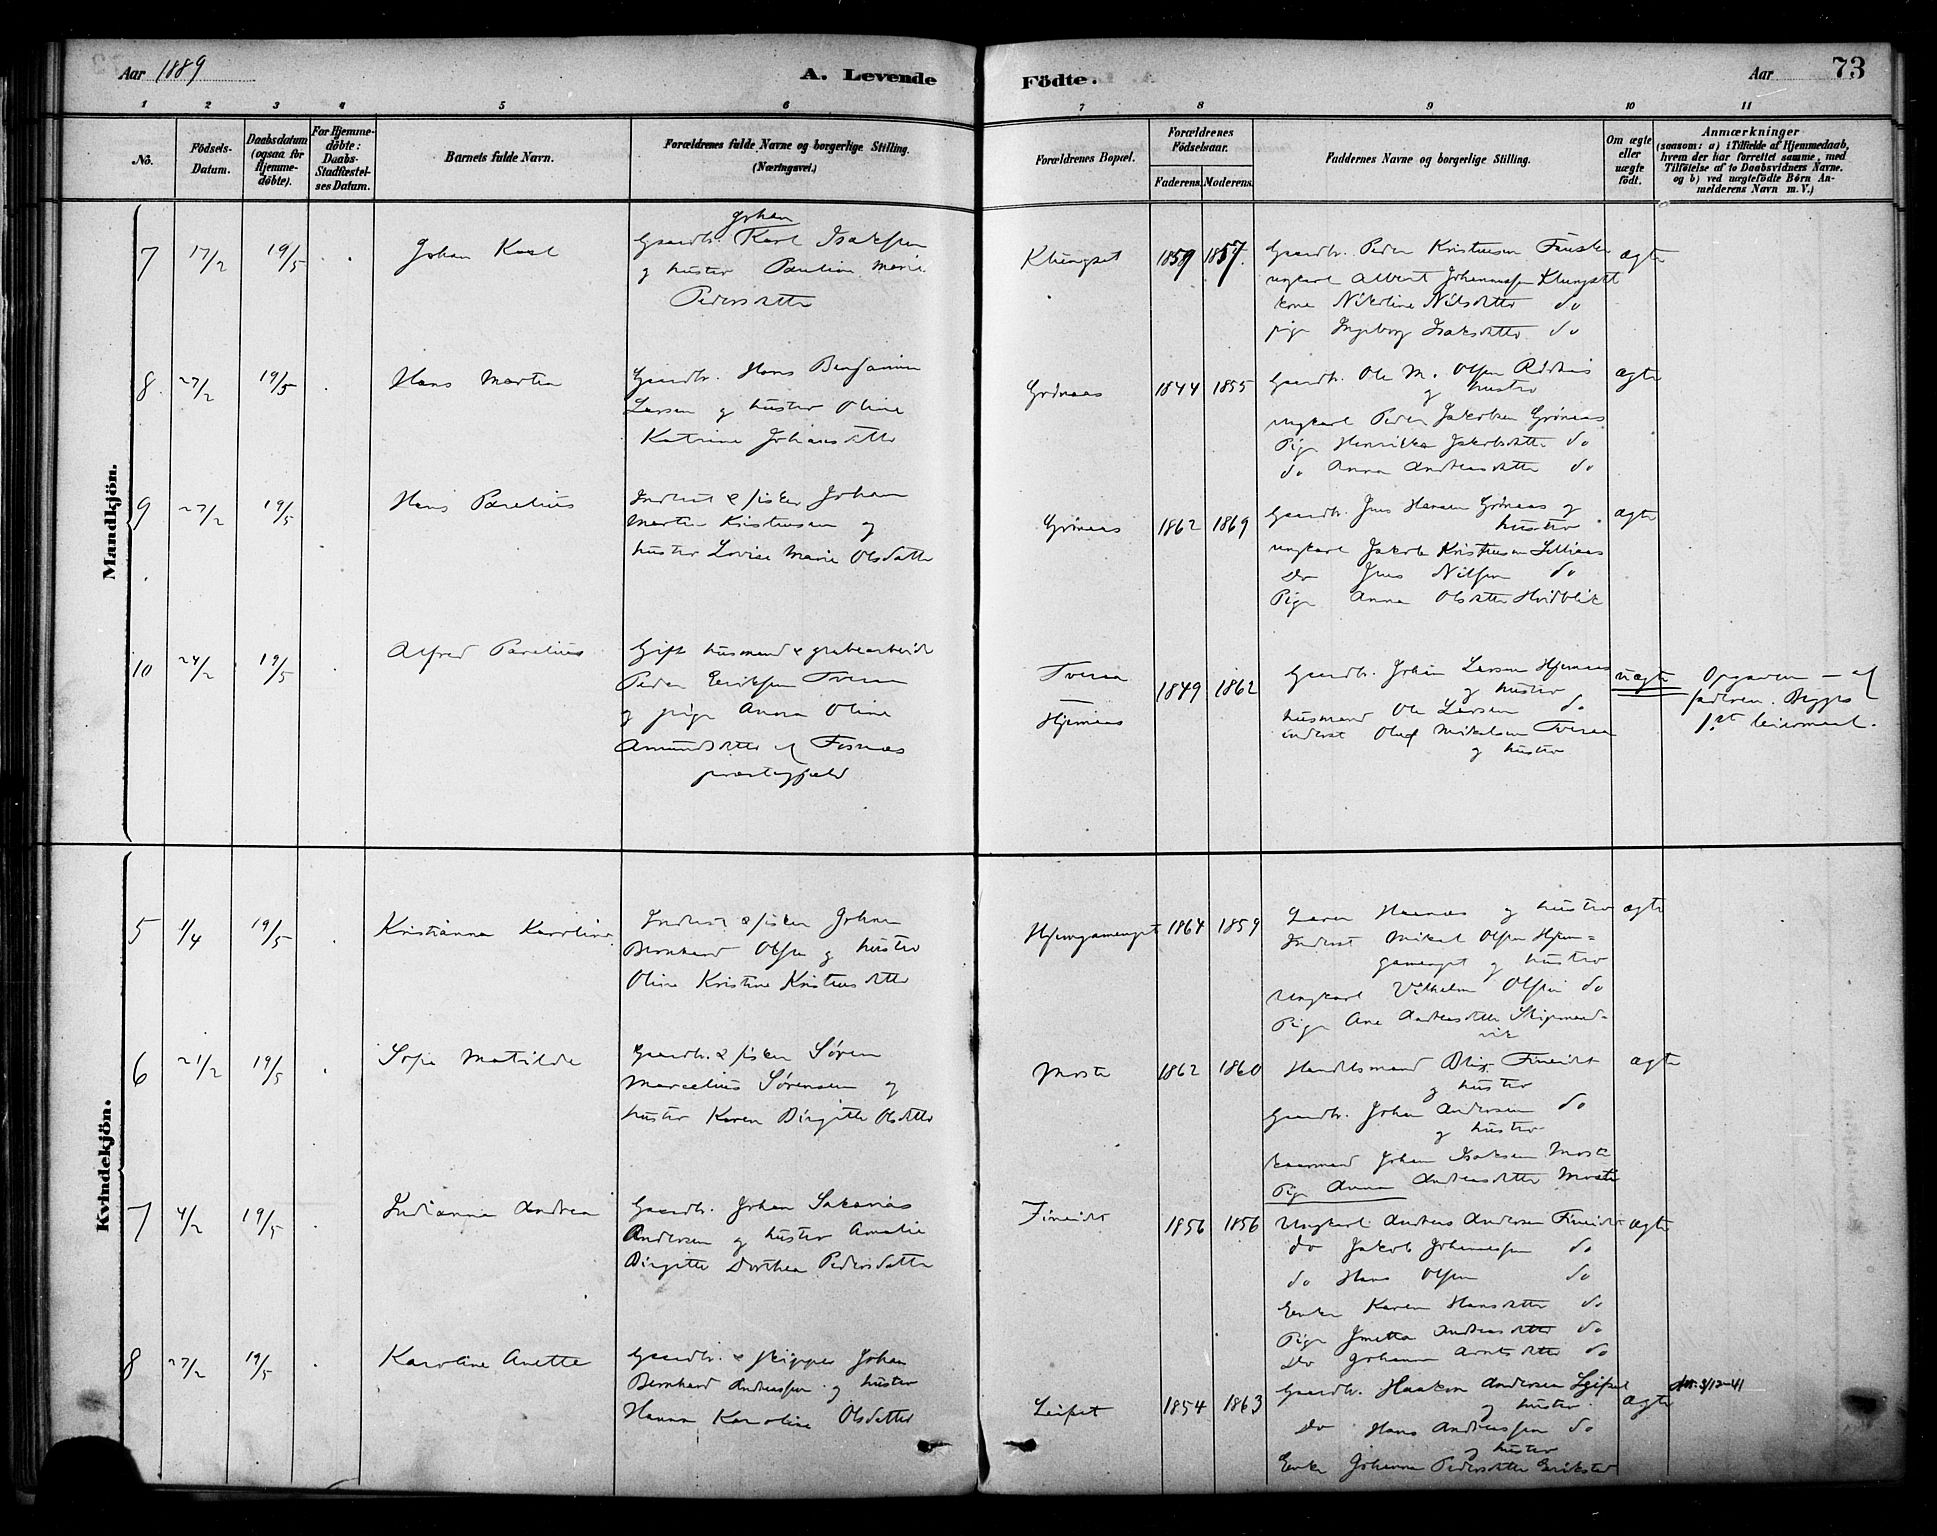 Aar 1889
A. Levende
Födte.
Aar
73
1 2 3 4 5 6 7 8 9 10 11
No.
Födsels-Datum.
Daabsdatum (ogsaa for Hjemme-döbte).
For Hjemme-döbte: Daabs-Stadfæstel-ses Datum.
Barnets fulde Navn.
Forældrenes fulde Navne og borgerlige Stilling. (Næringsvei.)
Forældrenes Bopæl.
Forældrenes Födselsaar.
Faderens. Moderens.
Faddernes Navne og borgerlige Stilling.
Om ægte eller uægte födt.
Anmærkninger
(saasom: a) i Tilfælde af Hjemmedaab,
hvem der har forrettet samme, med
Tilföielse af to Daabsvidners Navne.
og b) ved uægtefödte Börn An-
melderens Navn m. V.)
Mandkjön.
7 17/2 19/5 Johan Karl
Johan
Gaardbr. Karl Isaksen
og hustru Marie
Pedersdatter
Klungset 1859 1857
Gaardbr. Peder Kristensen Fauske
ungkarl Albert Johannessen Klungset
kone Nikoline Nilsdatter do
pige Ingeborg Isaksdatter do
ægte
8 27/2 19/5 Hans Martin
Gaardbr. Hans Benjamin
Larsen og hustru Oline
Katrine Johansdatter
Grønaas 1844 1855
Gaardbr. Ole M. Olsen
og hustru
ungkarl Peder Jakobsen Grønaas
Pige Henrikka Jakobsdatter do
do Anna Andreasdatter do
ægte
9 27/2 19/5 Hans Parelius
Inderst & fisker Johan
Martin Kristensen og
hustru Lovise Marie Olsdatter
Grønaas 1862 1869
Gaardbr. Jens Hansen Grønaas og
hustru
ungkarl Jakob Kristensen
Do Jens Nilsen do
Pige Anna Olsdatter Hvidblik
ægte
10 24/2 19/5 Alfred Parelius
Gift husmand & grubearbeider
Peder Eriksen Tveraa
og pige Anna Oline
Amundsdatter af Fosnæs
præstegjeld
Tveraa
Hjemaas 1849 1862
Gaardbr. Johan Larsen Hjemaas
og hustru
husmand Ole Larsen do
inderst Oluf Mikalsen Tveraa
og hustru
uægte
Opgaven af
faderen. Begges
1st leiermaal.
Kvindekjön.
5 1/4 19/5 Kristianna Karoline
Inderst & fisker Johan
Bernhard Olsen og hustru
Oline Kristine Kristensdatter
1864 1859
og hustru
Inderst Mikal Olsen
og hustru
Ungkarl Vilhelm Olsen do
Pige Ane Andreasdatter Skjevmand-
vik
ægte
6 21/2 19/5 Sofie Matilde
Gaardbr. & fisker Søren
Marcelius Sørensen og
hustru Karen Birgitte Olsdatter
Moste 1862 1860
Handelsmand Blix Fineidet
og hustru
Gaardbr. Johan Andersen do
og hustru
kaarmand Johan Isaksen Moste
Pige Anna Andreasdatter Moste
ægte
7 4/2 19/5 Indianna Andrea
Gaardbr. Johan Sakarias
Andersen og hustru Amalie
Birgitte Dorthea Pedersdatter
Fineidet 1856 1856
Ungkarl Andreas Andersen Fineidet
do Jakob Johannessen do
do Hans Olsen do
Enke Karen Hansdatter do
Pige Jmetta Andreasdatter do
Do Johanna Arntsdatter do
ægte
8 27/2 19/5 Karoline Anette
Gaardbr. & skipper Johan
Bernhard Andreassen og hustru
Hanna Karoline Olsdatter
Leifset 1854 1863
Gaardbr. Haakon Andersen Leifset
og hustru
Do Hans Andreassen do
og hustru
Enke Johanna Pedersdatter Erikstad
ægte